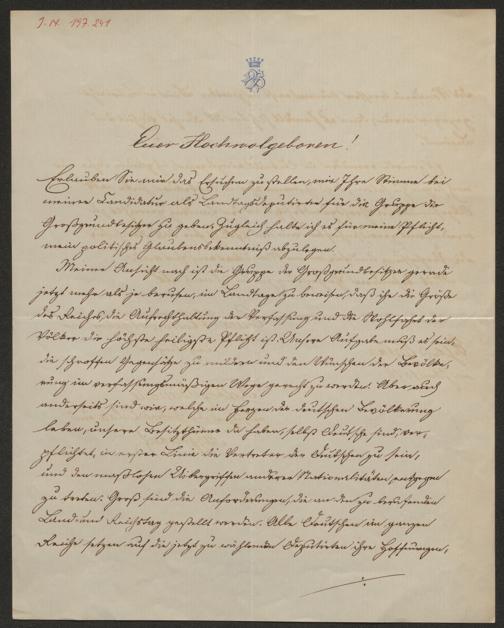 I.N. 197.241
Euer Hochwolgeboren!
Erlauben Sie mir das Ersuchen zu stellen, mir Ihre Stimme bei
meiner Candidatur als Landtagsdeputirter für die Gruppe der
Großgrundbesitzer zu geben. Zugleich halte ich es für meine Pflicht,
mein politisches Glaubensbekenntniß abzulegen.
Meiner Ansicht nach ist die Gruppe der Großgrundbesitzer gerade
jetzt mehr als je berufen, im Landtage zu beweisen, daß ihr die Größe
des Reiches, die Aufrechthaltung der Verfassung und die Wohlfahrt der
Völker die höchste heiligste Pflicht ist. Unsere Aufgabe muß es sein,
die schroffen Gegensätze zu mildern und den Wünschen der Bevölke,
rung im verfassungsmäßigen Wege gerecht zu werden. Aber auch
anderseits sind wir, welche im Herzen der deutschen Bevölkerung
leben, unsere Besitzthümer da haben, selbst Deutsche sind, ver,
pflichtet, in erster Linie die Vertreter der Deutschen zu sein,
und den maßlosen Uibergriffen anderer Nationalitäten, entgegen
zu treten. Groß sind die Anforderungen, die an den zu berufenden
Land- und Reichstag gestellt werden. Alle Deutschen im ganzen
Reiche setzen auf die jetzt zu wählenden Deputirten ihre Hoffnungen,